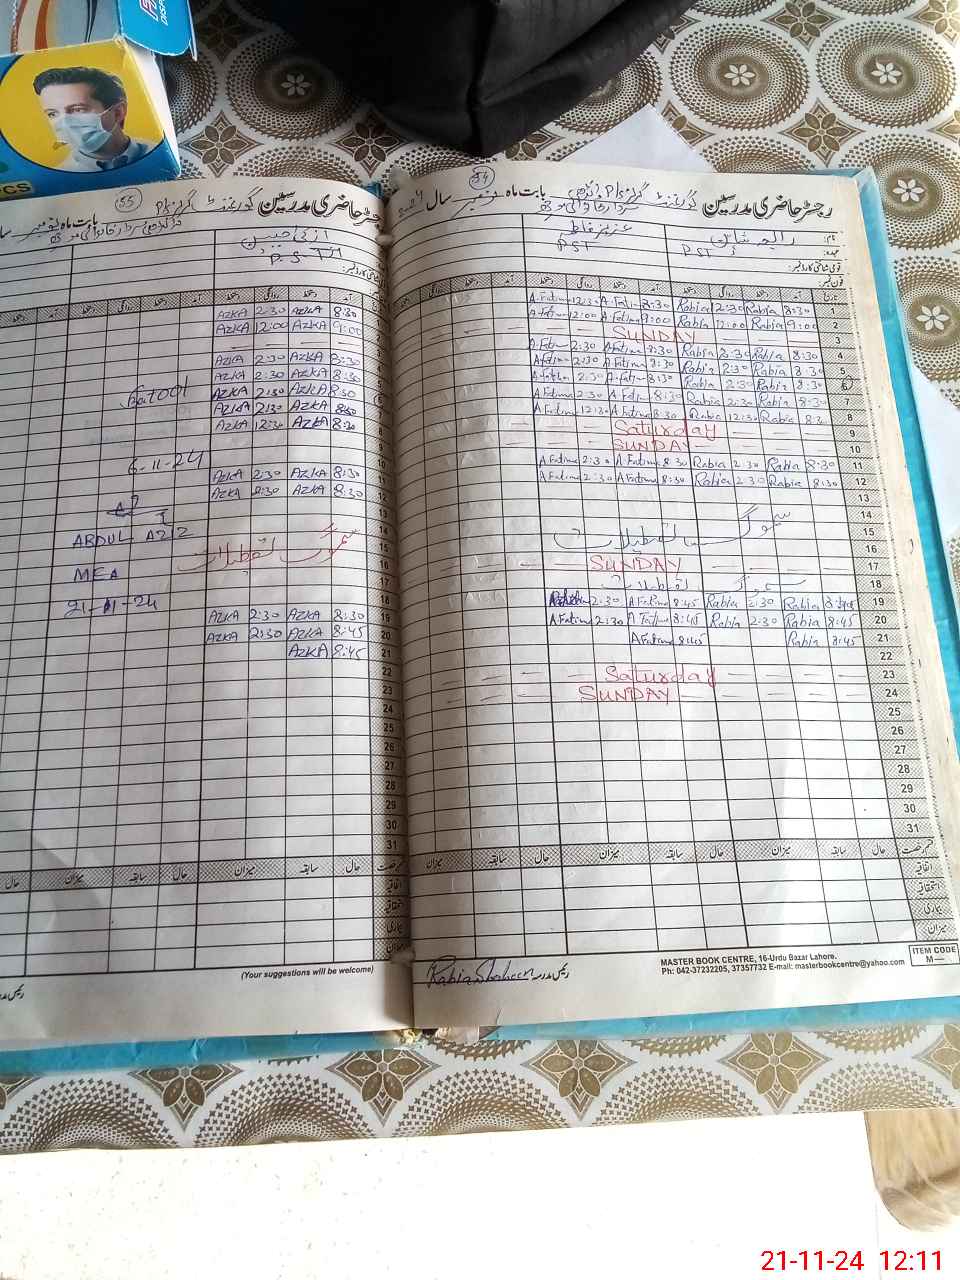 55
رجسٹر حاضری مدرسین گورنمنٹ گرلز
بابت ماہ نومبر
P.S.T
قومی شناختی کارڈ نمبر:
آمد دستخط روانگی دستخط آمد
AZKA 2:30 AZKA 8:30
AZKA 12:00 AZKA 9:00
AZKA 2:30 AZKA 8:30
AZKA 2:30 AZKA 8:30
AZKA 2:30 AZKA 8:30
AZKA 2:30 AZKA 8:30
AZKA 12:30 AZKA 8:30
6-11-24
AZKA 2:30 AZKA 8:30
AZKA 2:30 AZKA 8:30
ABDUL AZIZ
MEA
تعطیلات
21-11-24
AZKA 2:30 AZKA 8:30
AZKA 2:30 AZKA 8:45
AZKA 8:45
حال میزان سابقہ حال میزان سابقہ حال
اتفاقیہ
استحقاقیہ
بیماری
میزان
(Your suggestions will be welcome)
54
رجسٹر حاضری مدرسین گورنمنٹ گرلز
بابت ماہ نومبر سال
نام:
عہدہ: PST PST
قومی شناختی کارڈ نمبر:
فون نمبر:
تاریخ آمد دستخط روانگی دستخط
A.Fatima 12:30 A.Fatima 8:30 Rabia 12:30 Rabia 8:30 1
A.Fatima 12:00 A.Fatima 9:00 Rabia 12:00 Rabia 9:00 2
SUNDAY 3
A.Fatima 2:30 A.Fatima 8:30 Rabia 2:30 Rabia 8:30 4
A.Fatima 2:30 A.Fatima 8:30 Rabia 2:30 Rabia 8:30 5
A.Fatima 2:30 A.Fatima 8:30 Rabia 2:30 Rabia 8:30 6
A.Fatima 2:30 A.Fatima 8:30 Rabia 2:30 Rabia 8:30 7
A.Fatima 12:30 A.Fatima 8:30 Rabia 12:30 Rabia 8:30 8
Saturday 9
SUNDAY 10
A.Fatima 2:30 A.Fatima 8:30 Rabia 2:30 Rabia 8:30 11
A.Fatima 2:30 A.Fatima 8:30 Rabia 2:30 Rabia 8:30 12
13
14
سموگ تعطیلات 15
16
SUNDAY 17
سموگ تعطیلات 18
2:30 A.Fatima 8:45 Rabia 2:30 Rabia 8:45 19
A.Fatima 2:30 A.Fatima 8:45 Rabia 2:30 Rabia 8:45 20
A.Fatima 8:45 Rabia 8:45 21
22
Saturday 23
SUNDAY 24
25
26
27
28
29
30
31
قسم رخصت حال سابقہ میزان حال سابقہ میزان حال سابقہ میزان
اتفاقیہ
استحقاقیہ
بیماری
میزان
Rabia Shaheen رئیس مدرسہ
MASTER BOOK CENTRE, 16-Urdu Bazar Lahore.
Ph: 042-37232205, 37357732 E-mail: masterbookcentre@yahoo.com
ITEM CODE
M—
21-11-24 12:11